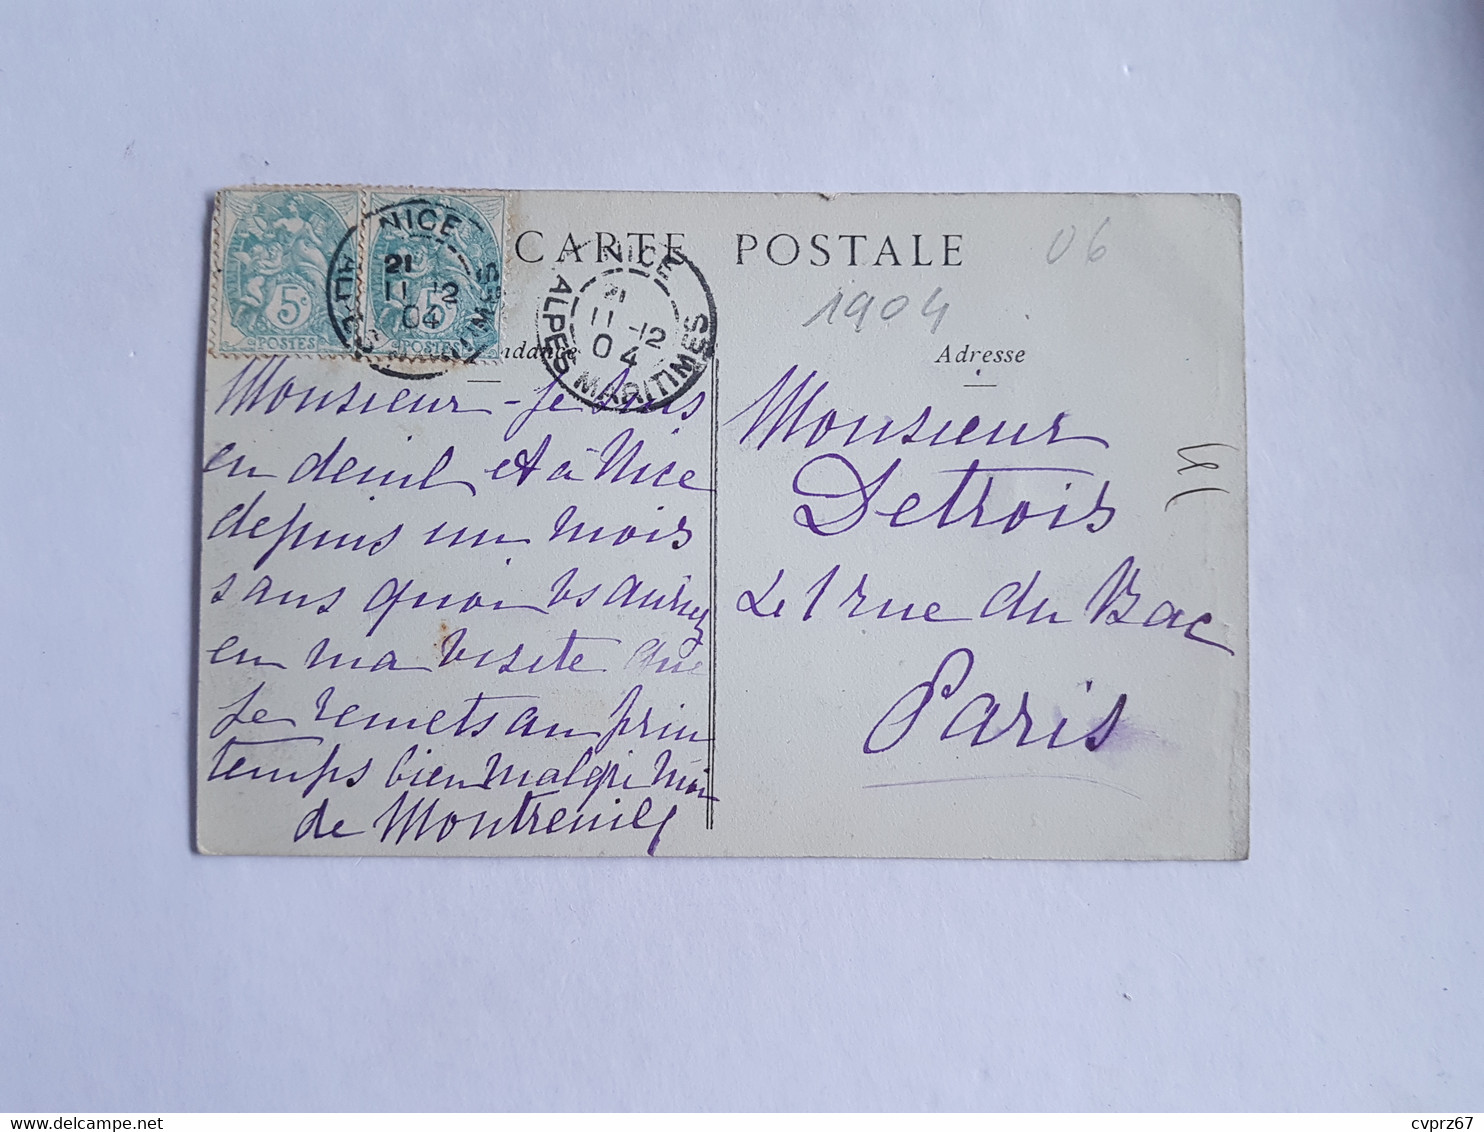 CARTE POSTALE
06
1904
NICE
21
11-12
04
ALPES MARITIMES
NICE
21
11-12
04
MARITIMES
5c
POSTES
5
POSTES
ndance
Monsieur - je suis
en deuil et à Nice
depuis un mois
sans quoi vs auriez
eu ma visite que
je remets au prin
temps bien malgré moi
de Montreuil
Adresse
Monsieur
Detrois
rue du Bac
Paris
cvprz67